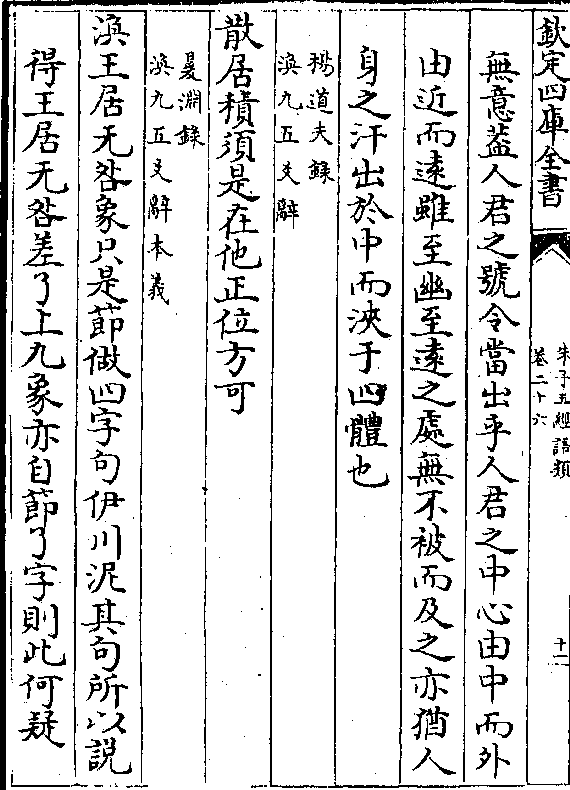 欽定四庫全書
朱子五經語類
卷二十六
十二
無意葢人君之號令當出乎人君之中心由中而外
由近而遠雖至幽至遠之處無不被而及之亦猶人
身之汗出於中而浹于四體也
楊道夫録
渙九五爻辭
散居積須是在他正位方可
㬊淵錄
渙九五爻辭本義
渙王居无咎象只是節做四字句伊川泥其句所以説
得王居无咎差了上九象亦自節了字則此何疑